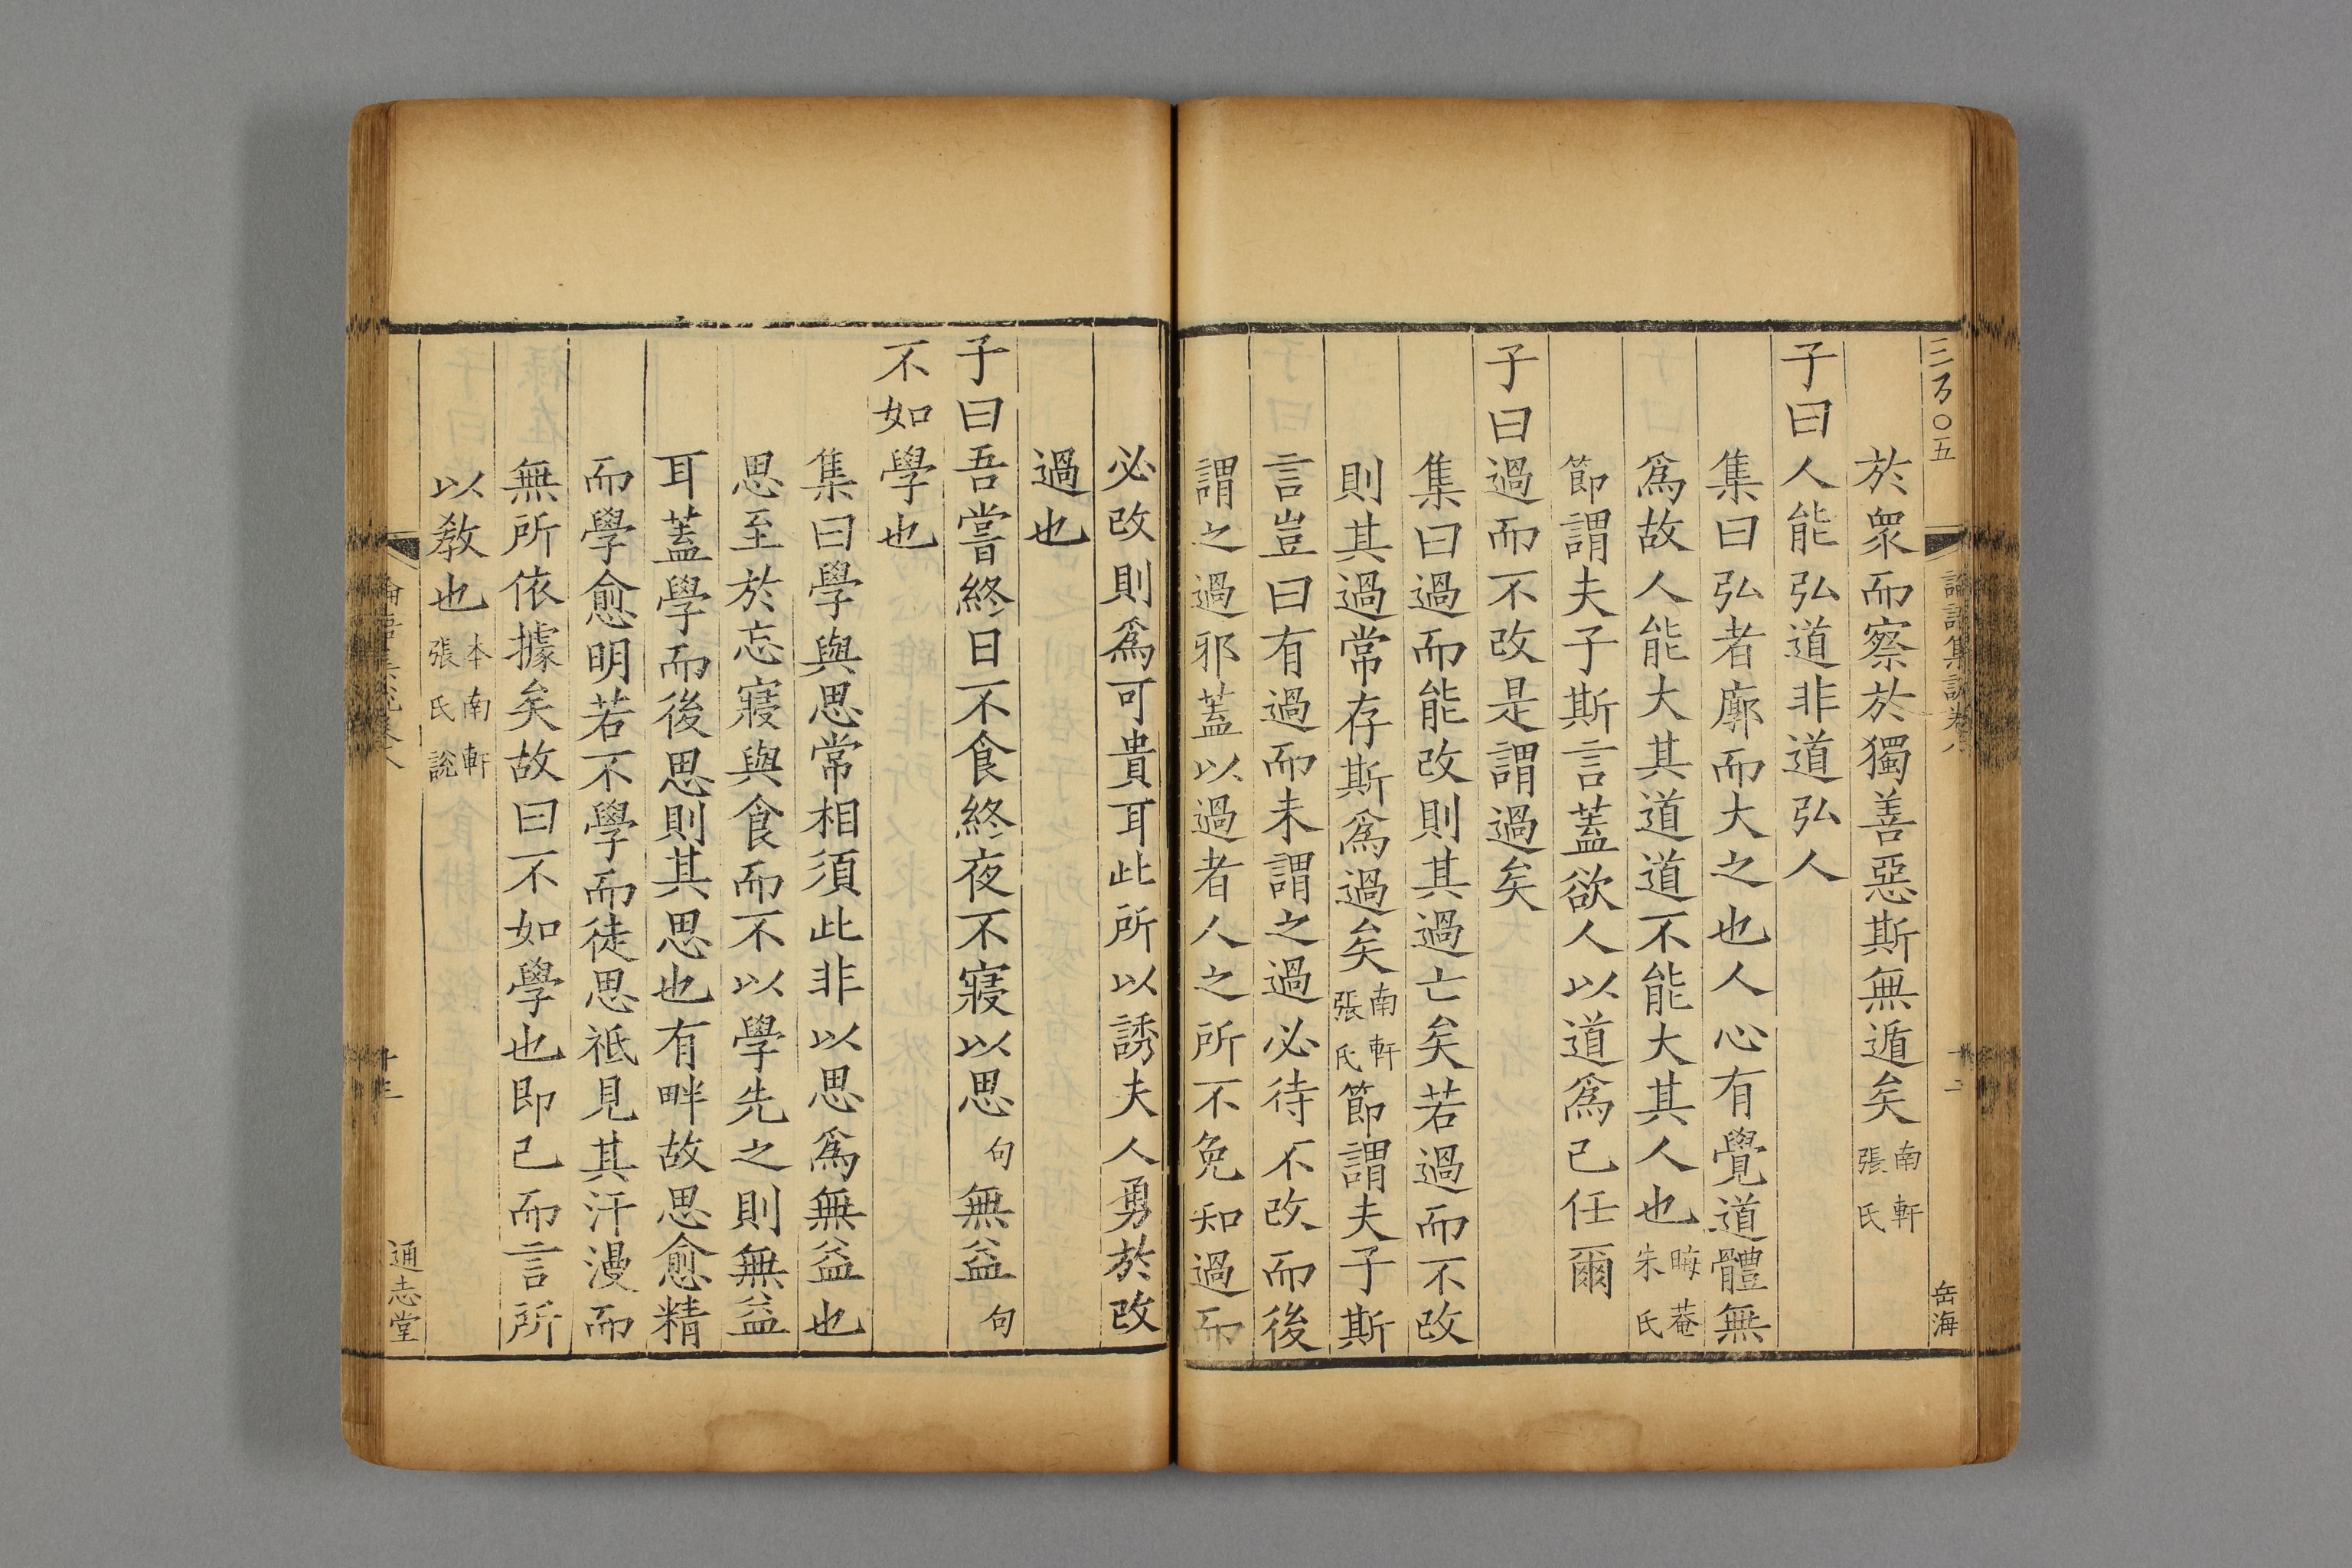 三百〇五
論語集說卷八
十二
岳海
於衆而察於獨善惡斯無遁矣南軒張氏
子曰人能弘道非道弘人
集曰弘者廓而大之也人心有覺道體無
爲故人能大其道道不能大其人也晦菴朱氏
節謂夫子斯言蓋欲人以道爲己任爾
子曰過而不改是謂過矣
集曰過而能改則其過亡矣若過而不改
則其過常存斯爲過矣南軒張氏節謂夫子斯
言豈曰有過而未謂之過必待不改而後
謂之過邪蓋以過者人之所不免知過而
必改則爲可貴耳此所以誘夫人勇於改
過也
子曰吾嘗終日不食終夜不寢以思句無益句
不如學也
集曰學與思常相須此非以思爲無益也
思至於忘寢與食而不以學先之則無益
耳蓋學而後思則其思也有畔故思愈精
而學愈明若不學而徒思祗見其汗漫而
無所依據矣故曰不如學也即己而言所
以教也本南軒張氏說
論語集說卷八
十三
通志堂